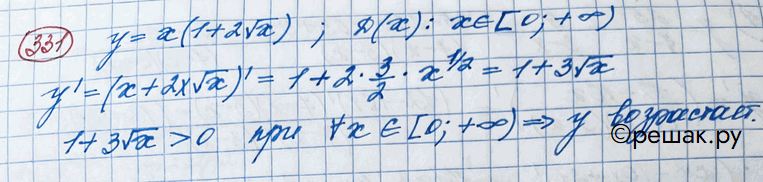 331 y = x(1+2√x) ; D(x): x∈[0; +∞)
y' = (x+2x√x)' = 1+2·3/2·x^1/2 = 1+3√x
1+3√x > 0 при ∀x∈[0; +∞) ⇒ y возрастает.
©решак.ру